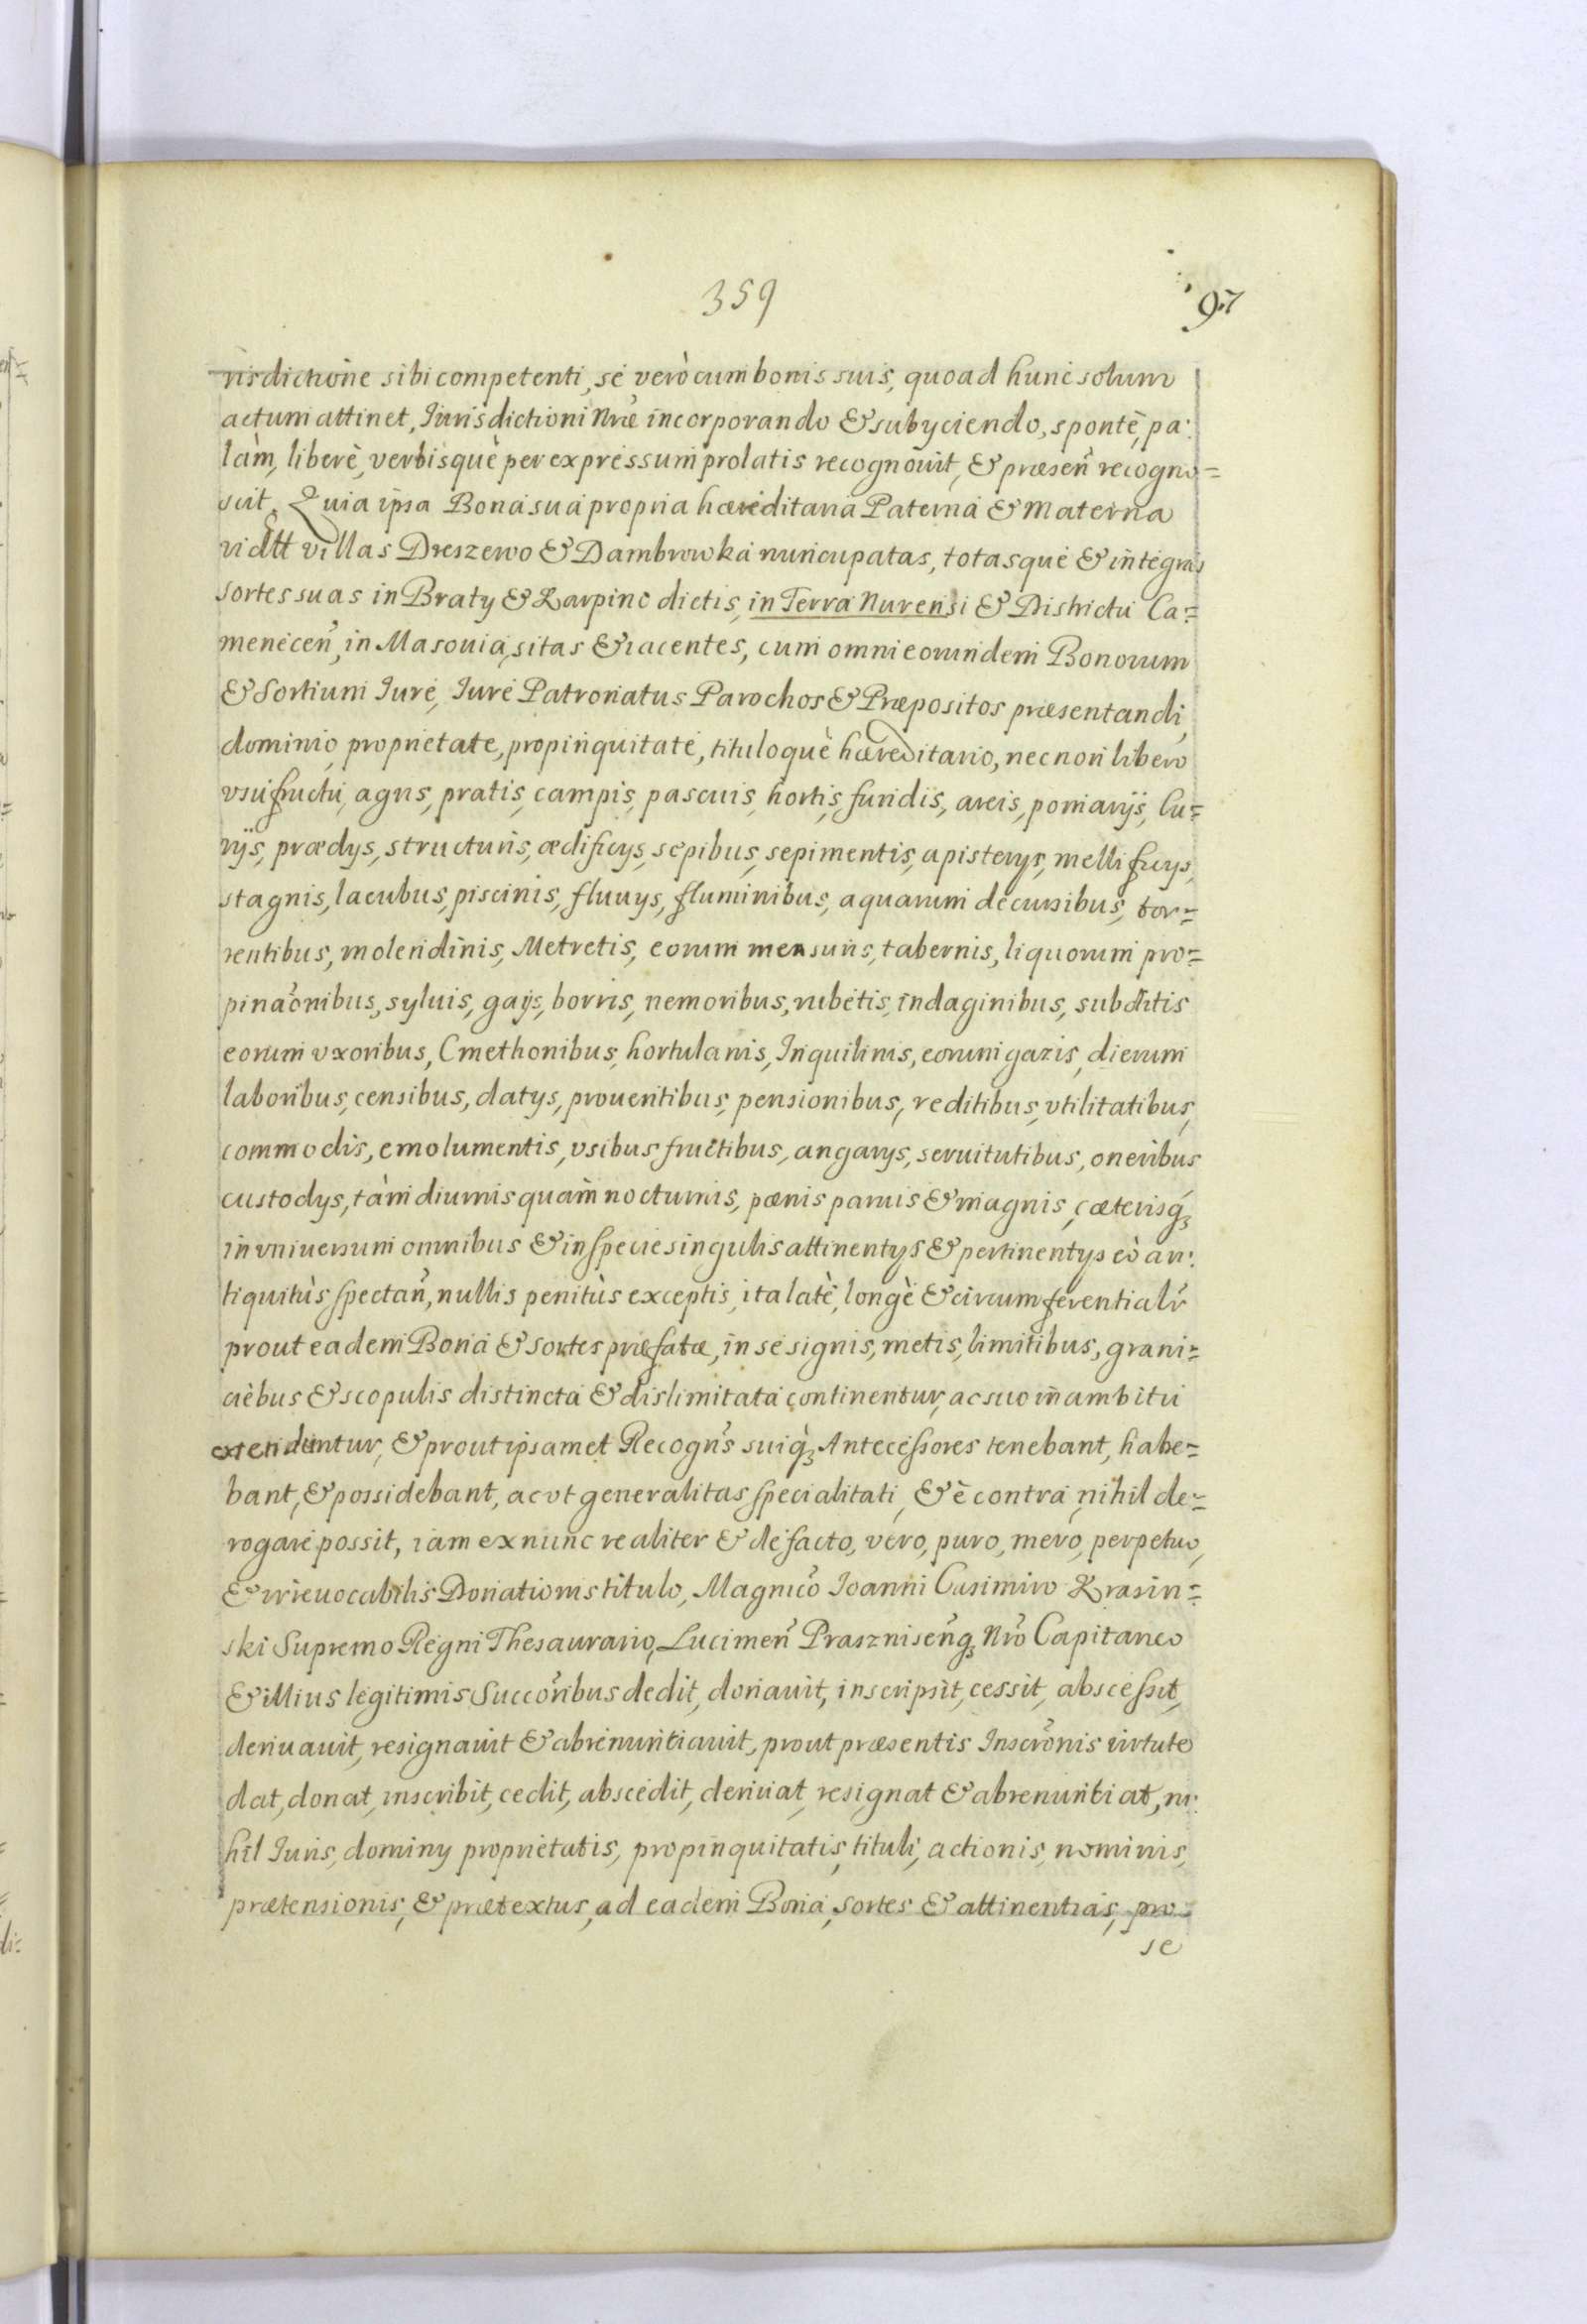 359
97
risdictione sibi competenti, se verò cum bonis suis, quoad hunc solum
actum attinet, Iurisdictioni Nrae incorporando & subyciendo, spontè, pa:
làm, liberè, verbisquè per expressum prolatis recognouit, & praesen̉ recogno=
scit. Quia ipsa Bona sua propria haereditaria Paterna & Materna
vidtt villas Dreszewo & Dambrowka nuncupatas, totasque & integras
sortes suas in Braty & Karpino dictis, in Terra Nurensi & Districtu Ca=
menecen̉, in Masouia, sitas & iacentes, cum omni eorundem Bonorum
& Sortium Iure, Iure Patronatus Parochos & Praepositos praesentandi,
dominio, proprietate, propinquitate, tituloquè haereditario, necnon libero
vsufructu, agris, pratis, campis, pascuis, hortis, fundis, areis, pomarijs, Cu=
rijs, praedys, structuris, aedificys, sepibus, sepimentis, apisterys, mellificys,
stagnis, lacubus, piscinis, fluuys, fluminibus, aquarum decursibus, tor=
rentibus, molendinis, Metretis, eorum mensuris, tabernis, liquorum pro=
pinaònibus, syluis, gaijs, borris, nemoribus, rubetis, indaginibus, subditis
eorum vxoribus, Cmethonibus, hortulanis, Inquilinis, eorum gazis, dierum
laboribus, censibus, datys, prouentibus, pensionibus, reditibus, vtilitatibus,
commodis, emolumentis, vsibus fructibus, angarys, seruitutibus, oneribus
custodys, tàm diurnis quam nocturnis, paenis paruis & magnis, caeterisq́
in vniuersum omnibus & in specie singulis attinentys & pertinentys eò an:
tiquitùs spectan̉, nullis penitùs exceptis, ita latè, longè & circumferentialr̉
prout eadem Bona & sortes praefatae, in se signis, metis, limitibus, grani=
ciebus & scopulis distincta & dislimitata continentur, ac suo in ambitu
extenduntur, & prout ipsamet Recogn̉s suiq́ Antecessores tenebant, habe=
bant, & possidebant, ac vt generalitas specialitati, & è contra nihil de=
rogare possit, iam ex nunc realiter & de facto, vero, puro, mero, perpetuo,
& irreuocabilis Donationis titulo, Magnico̓ Ioanni Casimiro Krasin=
ski Supremo Regni Thesaurario, Lucimen̉ Praszniseng̉ Nro̓ Capitaneo
& illius legitimis Succoribus dedit, donauit, inscripsit, cessit, abscessit,
deriuauit, resignauit & abrenuntiauit, prout praesentis Inscrònis virtute
dat, donat, inscribit, cedit, abscedit, deriuat, resignat & abrenuntiat, ni:
hil Iuris, dominy proprietatis, propinquitatis, tituli, actionis, nominis,
praetensionis, & praetextus, ad eadem Bona, sortes & attinentias, pro
se